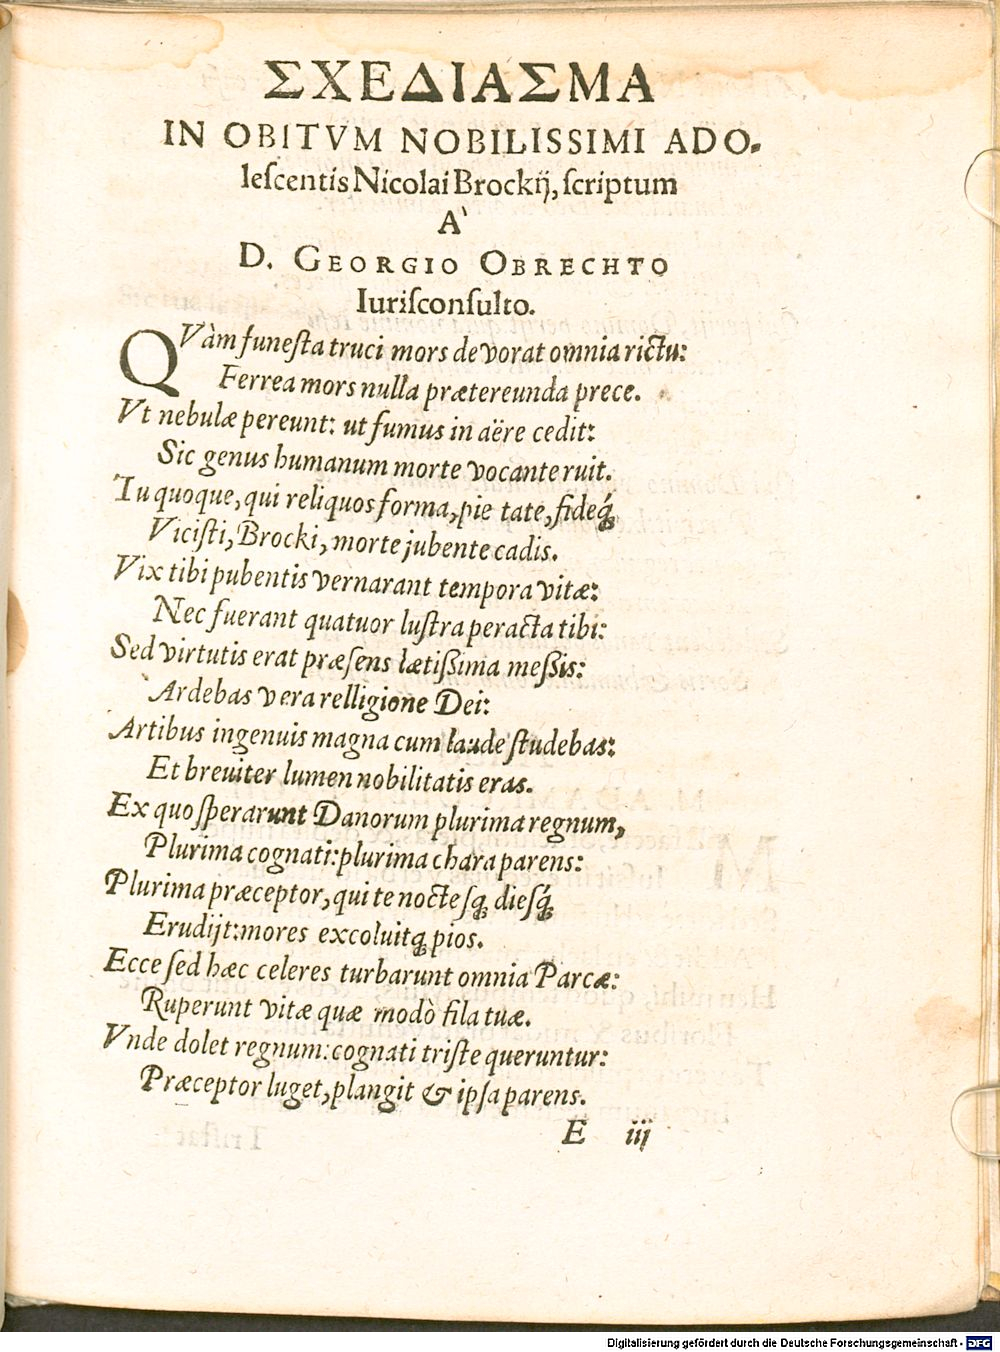 ΣΧΕΔΙΑΣΜΑ
IN OBITVM NOBILISSIMI ADO-
leſcentis Nicolai Brockij, ſcriptum
A`
D. GEORGIO OBRECHTO
Iuriſconſulto.
QVàm funeſta truci mors devorat omnia rictu:
Ferrea mors nulla prætereunda prece.
Vt nebulæ pereunt: ut fumus in aëre cedit:
Sic genus humanum morte vocante ruit.
Tu quoque, qui reliquos forma, pie tate, fideq́;
Viciſti, Brocki, morte jubente cadis.
Vix tibi pubentis vernarant tempora vitæ:
Nec fuerant quatuor luſtra peracta tibi:
Sed virtutis erat præſens lætißima meßis:
Ardebas vera relligione Dei:
Artibus ingenuis magna cum laude ſtudebas:
Et breuiter lumen nobilitatis eras.
Ex quo ſperarunt Danorum plurima regnum,
Plurima cognati: plurima chara parens:
Plurima præceptor, qui te nocteſq; dieſq́;
Erudijt: mores excoluitq; pios.
Ecce ſed hæc celeres turbarunt omnia Parcæ:
Ruperunt vitæ quæ modò fila tuæ.
Vnde dolet regnum: cognati triſte queruntur:
Præceptor luget, plangit & ipſa parens.
E iij
Digitalisierung gefördert durch die Deutsche Forschungsgemeinschaft - DFG